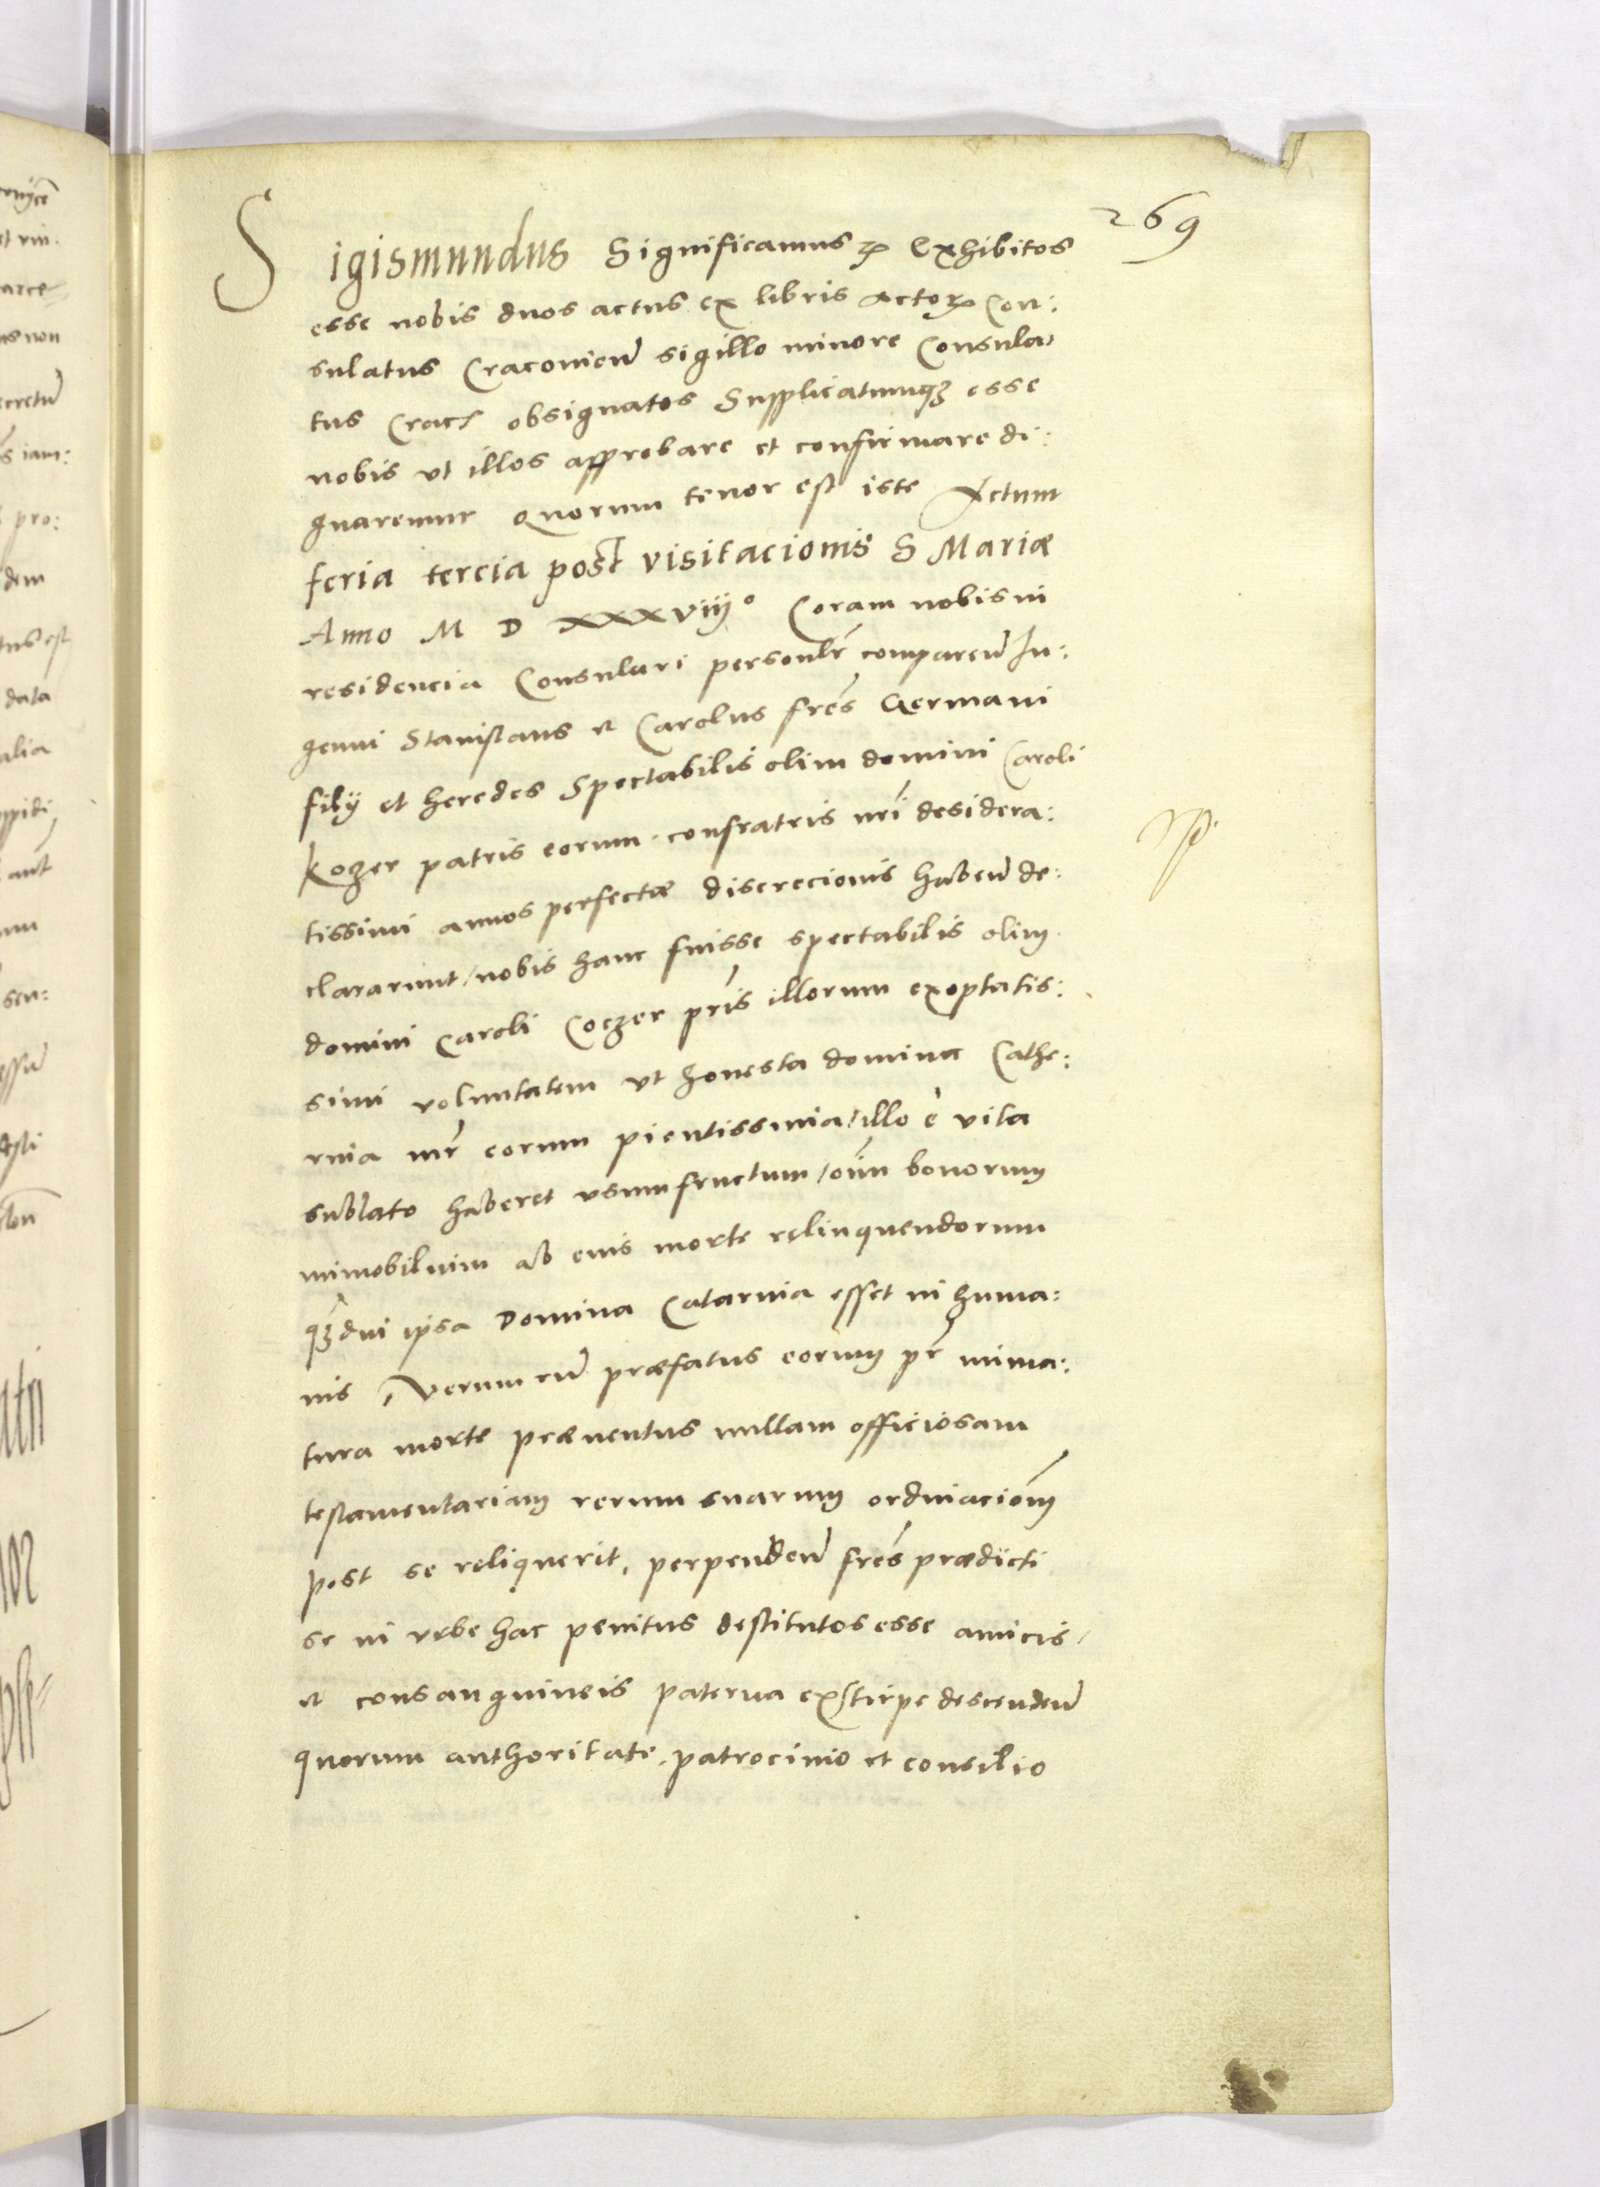 269
Sigismundus Significamus ꝛc Exhibitos
esse nobis duos actus ex libris Actoꝝ Con:
sulatus Cracovien̄ sigillo minore Consula,
tus Crac obsignatos Supplicatumqꝫ esse
nobis ut illos approbare et confirmare di:
gnaremur Quorum tenor est iste Actum
feria tercia post visitacionis S Mariæ
Anno M D xxxviijº Coram nobis in
residencia Consulari personlr̄ comparen̄ In:
genui Stanislaus et Carolus fr̄es Germani
filÿ et heredes Spectabilis olim domini Caroli
Koczer patris eorum confratris nr̄i desidera:
tissimi annos perfectæ discrecionis haben̄ de:
clararunt / nobis hanc fuisse spectabilis olim
domini Caroli Coczer pr̄is illorum exoptatis:
simi voluntatem ut honesta domina Cathe:
rina mr̄ eorum pientissima / illo e vita
sublato haberet usumfructum / oīm bonorum
immobilium ab eius morte relinquendorum
qꝫdiu ipsa Domina Catarina esset in huma:
nis Verum cū præfatus eorum pr̄ imma:
tura morte præventus nullam officiosam
testamentariam rerum suarum ordinacionē
post se reliquerit, perpenden̄ fr̄es prædicti
se in urbe hac penitus destitutos esse amicis,
et consanguineis paterna ex stirpe descenden̄
quorum authoritate, patrocinio et consilio